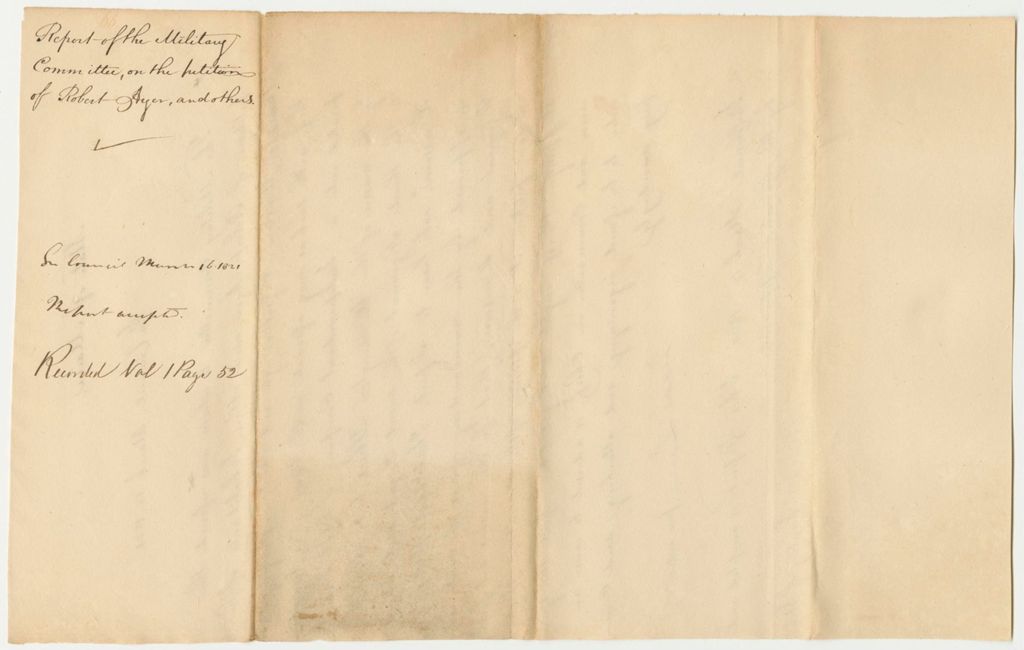 Report of the Military
Committee, on the petition
of Robert Ayer, and others.
In Council March 16 1821
Report accepted.
Recorded Vol 1 Page 52